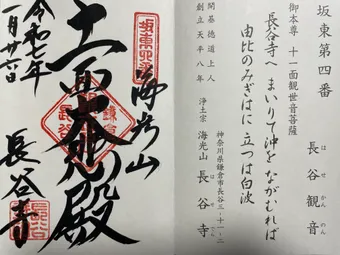 坂東第四番
長谷観音
は せ かん のん
御本尊 十一面観世音菩薩
長谷寺へ まいりて沖を ながむれば
由比のみぎはに 立つは白波
開基徳道上人
創立天平八年
浄土宗 海光山 長谷寺
は せ でら
神奈川県鎌倉市長谷三-十一-二
坂東四番
海光山
十一面大悲殿
長谷寺
令和七年
一月廿六日